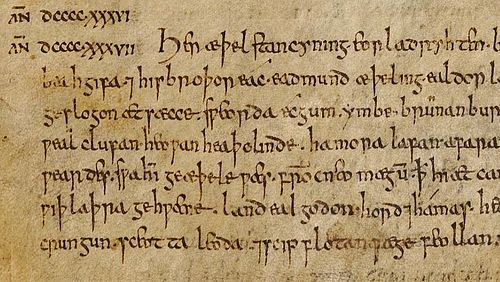 AN̄ dcccc.xxxvi
AN̄ dcccc.xxxvii Her æþelstan cyning. eorla dryhten. b
beahgifa. ⁊ his broþor eac. eadmund æþeling. ealdor l
geslogon æt sæcce. sƿeorda ecgum. ymbe brunanbur
ƿeal clufan. heoƿan heaþolinde. hamora lafan. afara
ƿeardes. sƿa hī geæþele ƿæs. frō cneo magū. ꝥ hi æt ca
ƿiþ laþra gehƿæne. land ealgodon. hord ⁊ hámas. he
crungun. sceotta leoda. ⁊ scip flotan. fæge feollan.